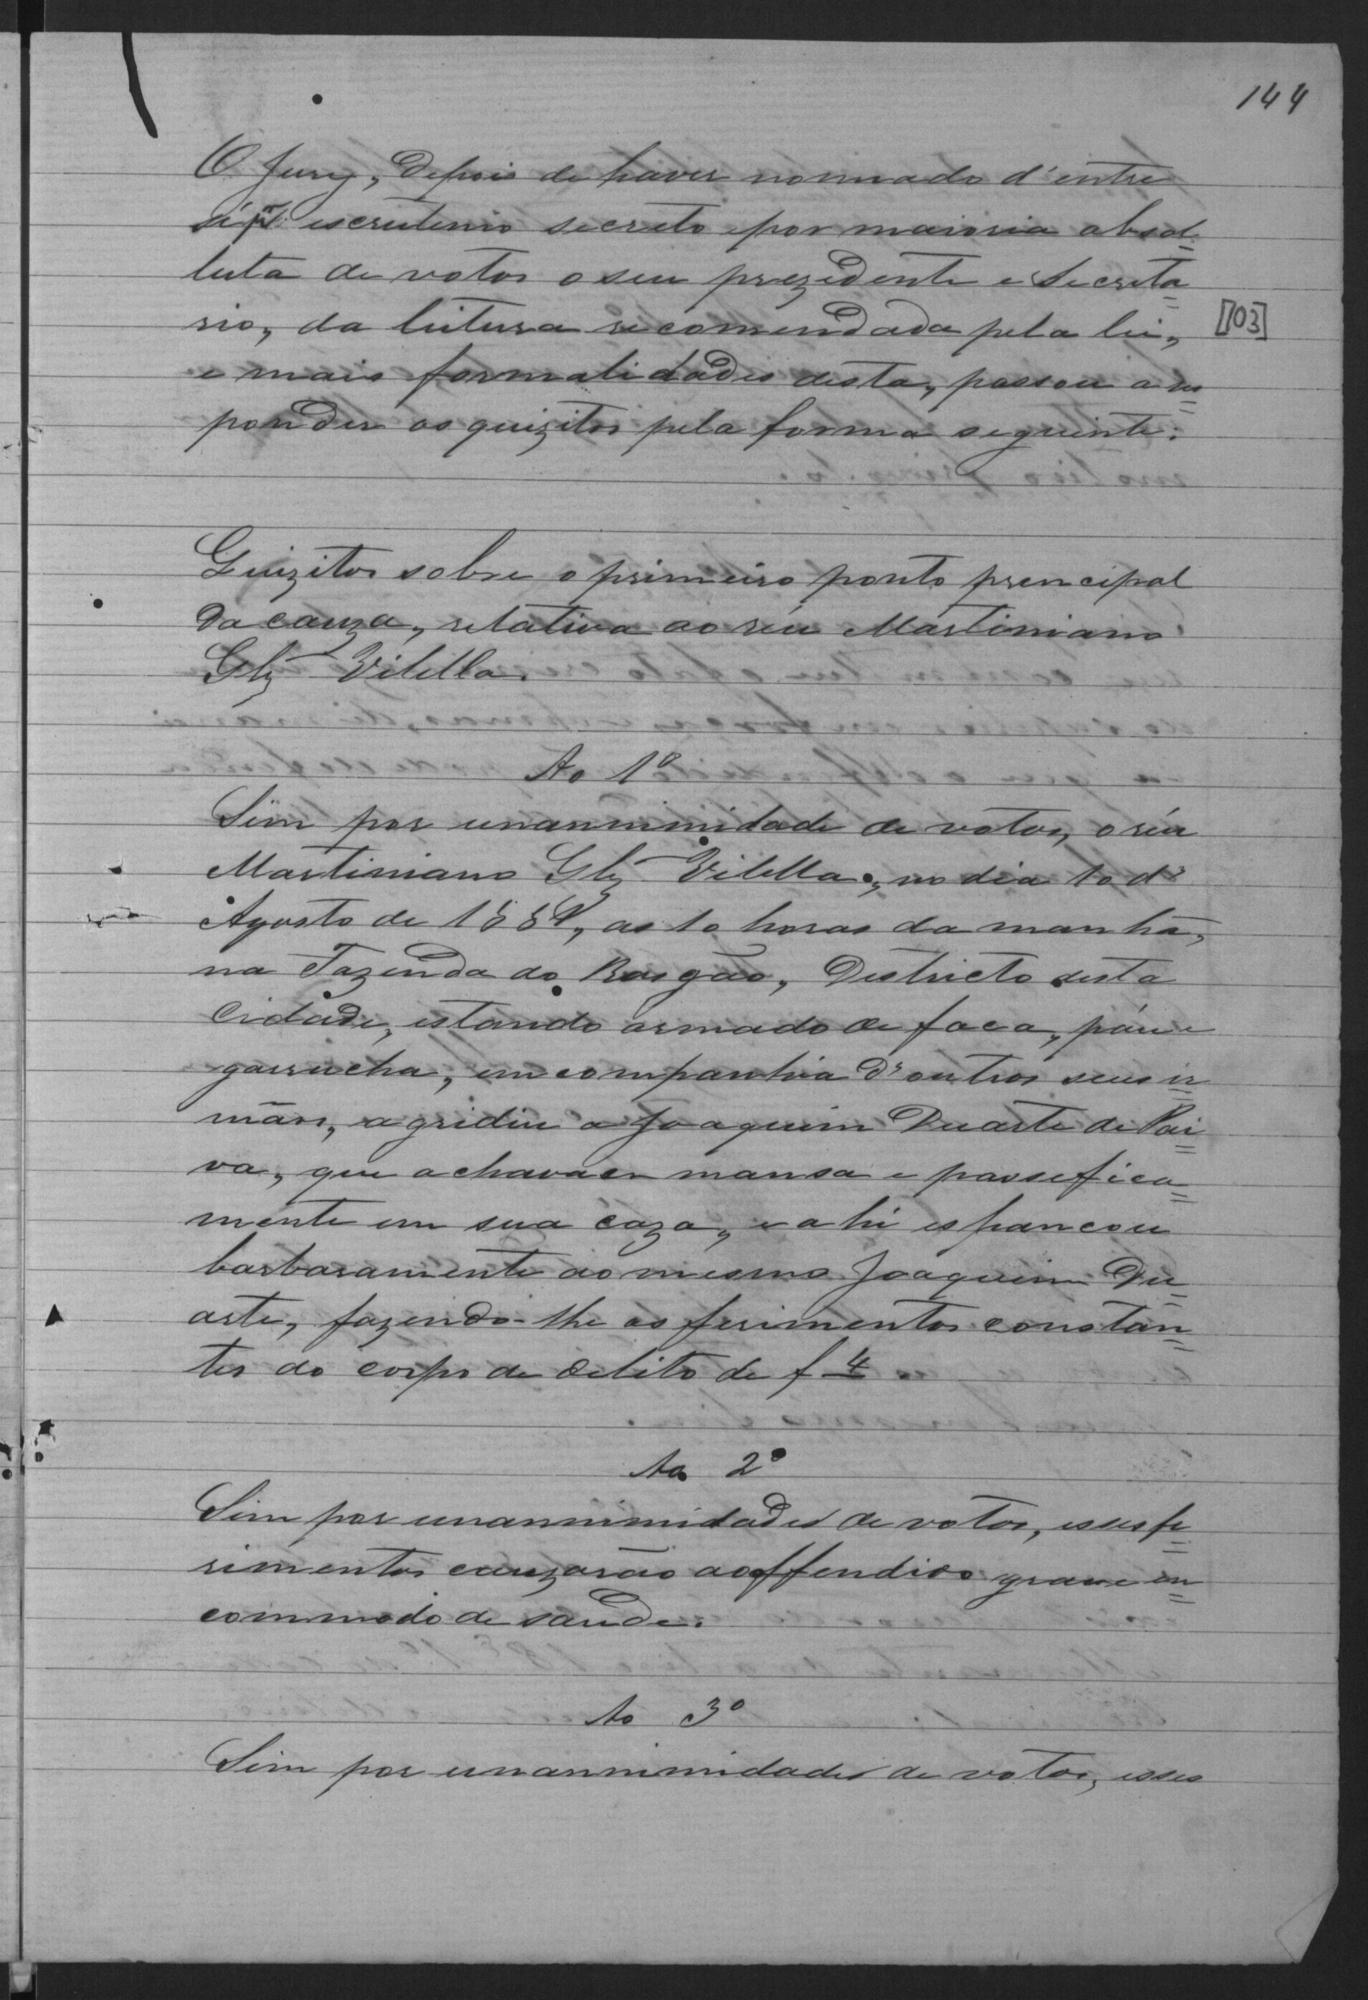 144
O Jury, depois de haver nomiado d'entre
sí pr escrutenio secreto por maioria absol=
luta de votos o seu prezidente e Secreta=
rio, da leitura recomendada pela lei, [103]
e mais formalidades desta, passou a res=
ponder os quizitos pela forma seguinte:
Quizitos sobre o primeiro ponto prencipal
da cauza, relativa ao réu Martiniano
Glz Vilella.
Ao 1º
Sim por unannimidade de votos, o réu
Martiniano Glz Vilella, no dia 10 d'
Agosto de 1884, as 10 horas da manhã,
na Fazenda do Rasgão, Destricto desta
Cidade, estando armado de faca, páu e
garrucha, em companhia d'outros seus ir=
mãos, agridiu a Joaquim Duarte de Pai=
va, que achava-se mansa e passefica=
mente em sua caza, e ahi espancou
barbaramente ao mesmo Joaquim Du=
arte, fazendo-lhe os ferimentos constan=
tes do corpo de delito de f 4
Ao 2º
Sim por unannimidades de votos, esses fe=
rimentos cauzarão ao offendido grave in=
commodo de saude.
Ao 3º
Sim por unannimidades de votos, esses